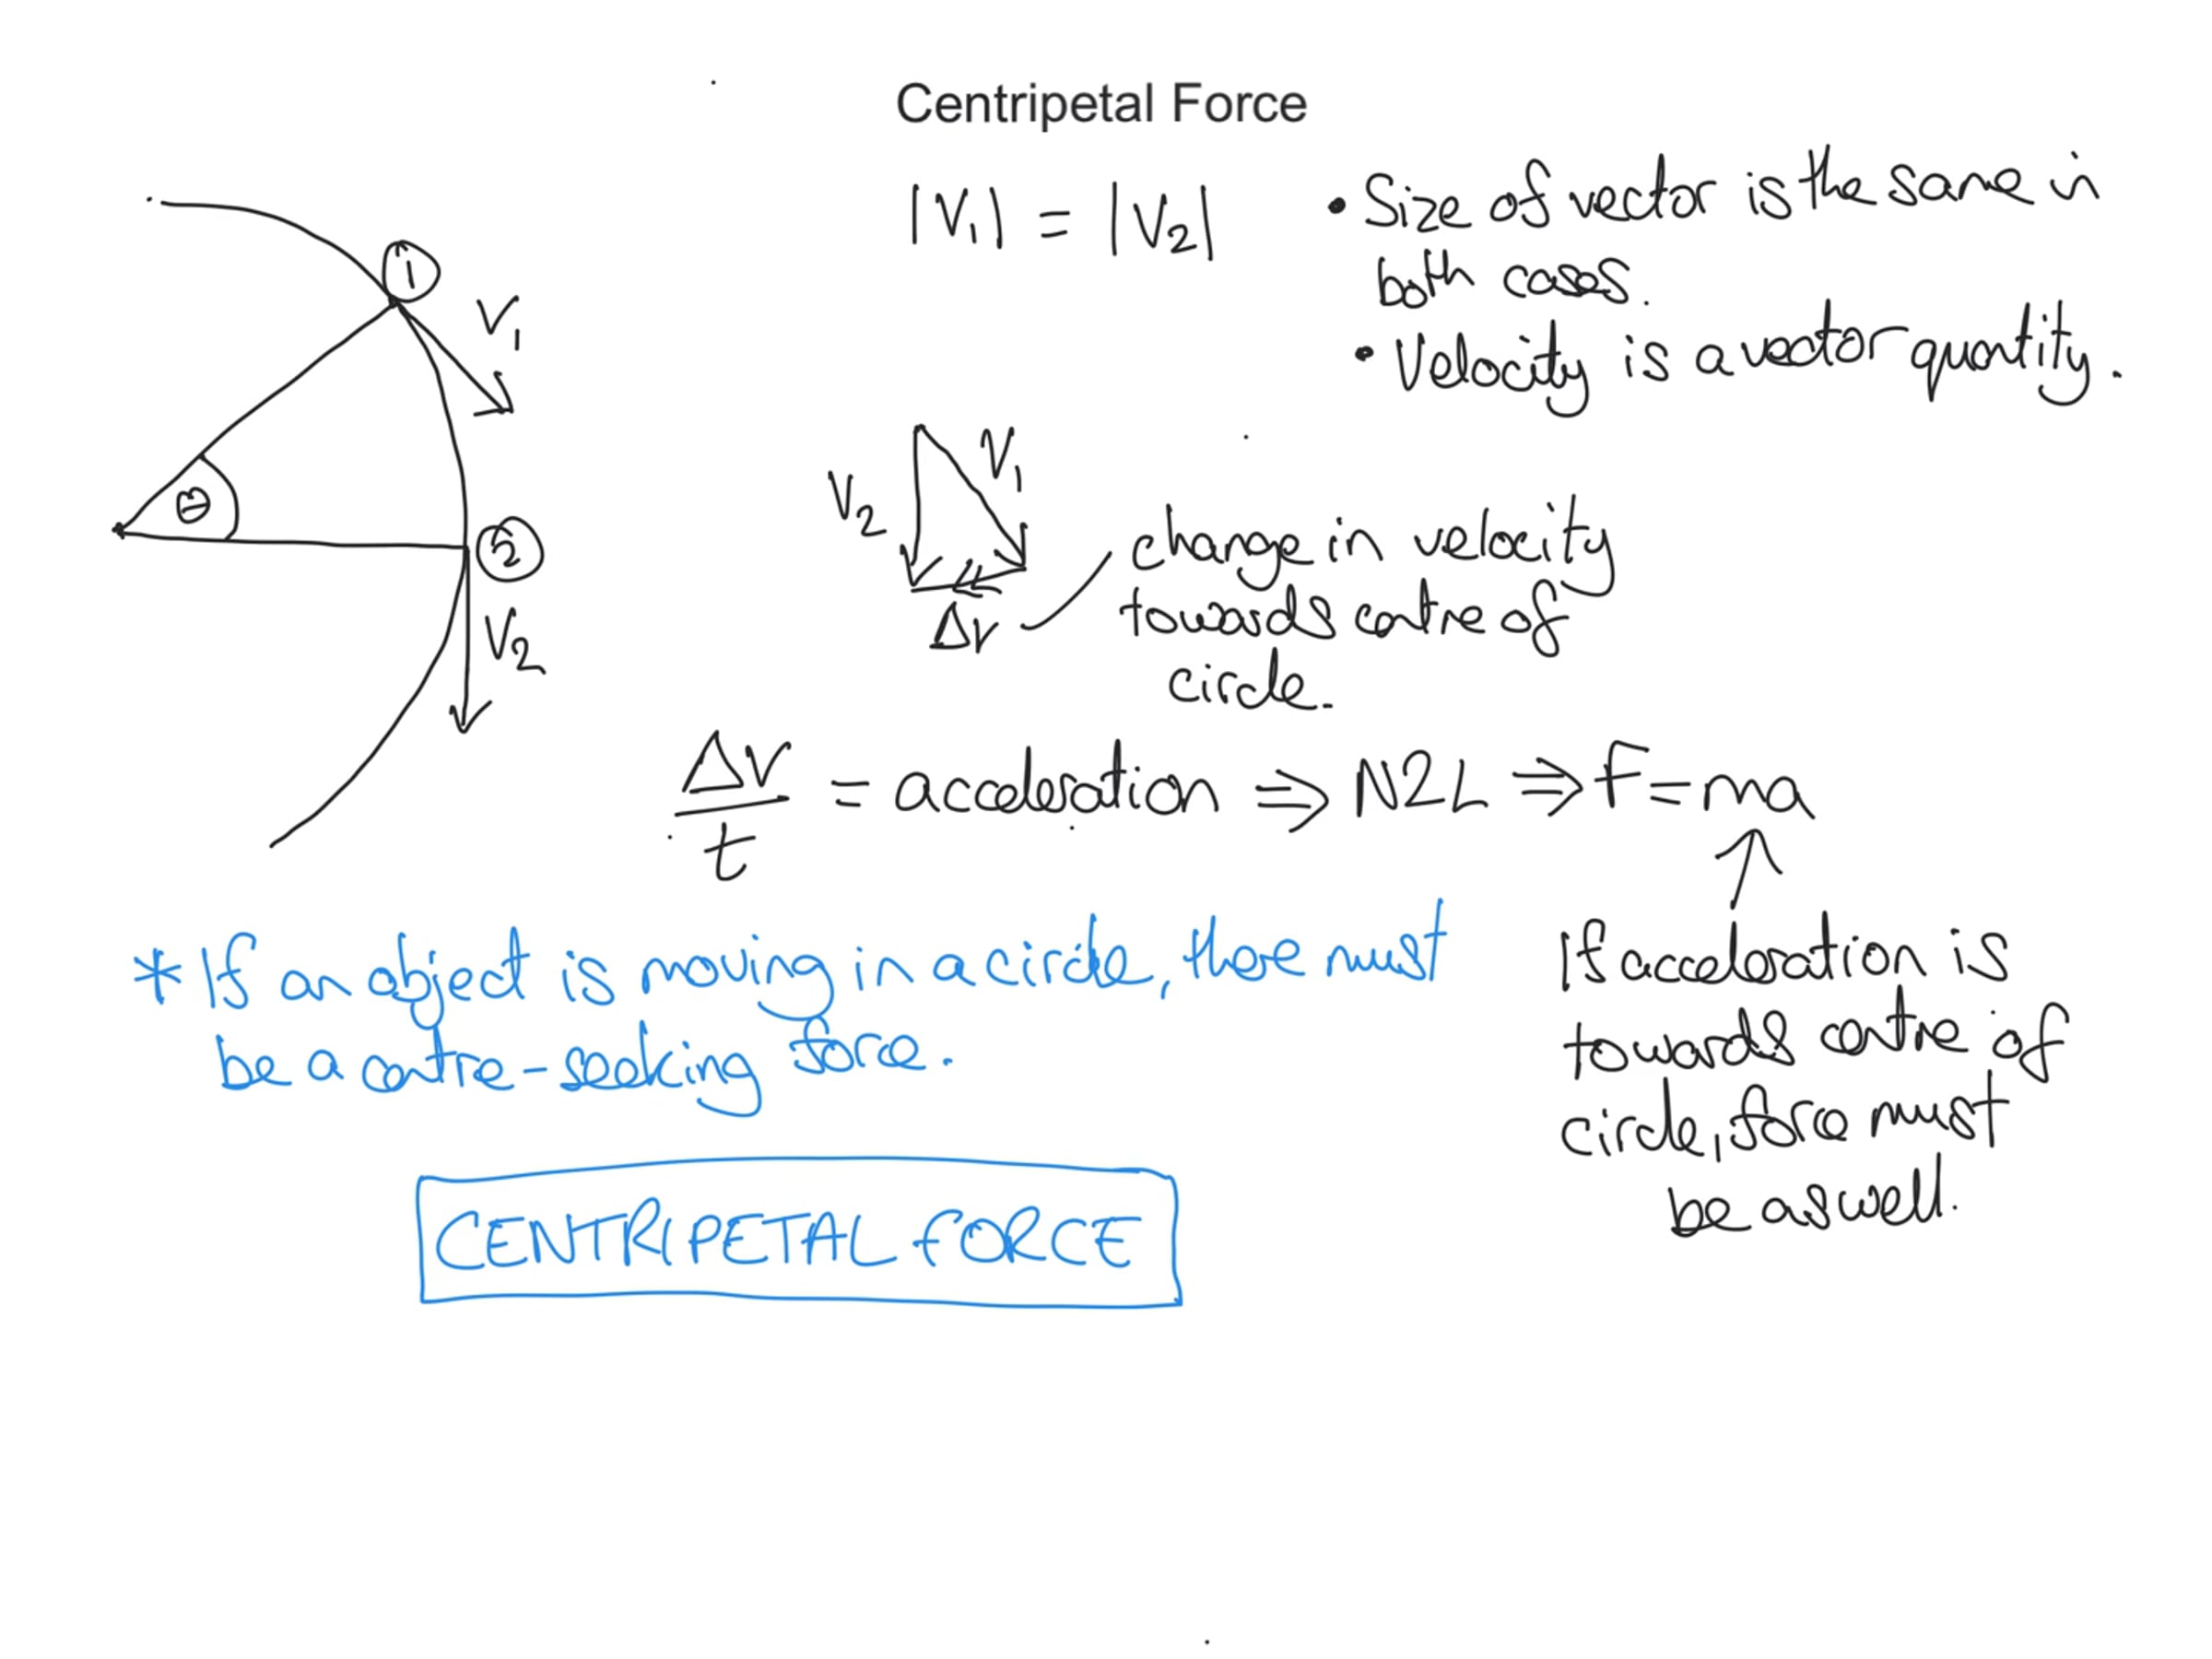 Centripetal Force
|V₁| = |V₂|
• Size of vector is the same in
both cases.
• Velocity is a vector quantity.
1
V₁
θ
2
V₂
V₂
V₁
Δv
change in velocity
towards centre of
circle.
Δv/t = acceleration ⇒ N2L ⇒ F=ma
If acceleration is
towards centre of
circle, force must
be as well.
* If an object is moving in a circle, there must
be a centre-seeking force.
CENTRIPETAL FORCE